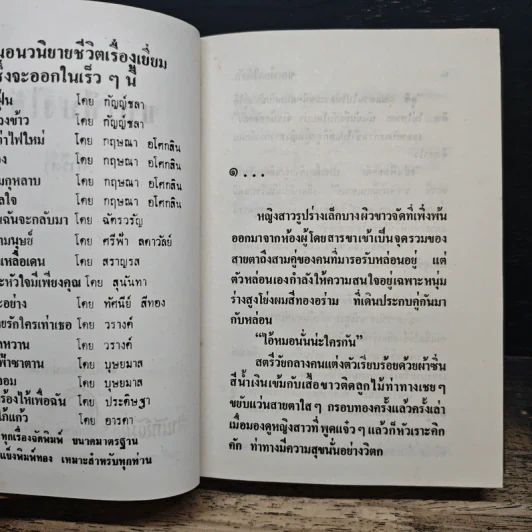 นอนวนิยายชีวิตเรื่องเยี่ยม
จะออกในเร็ว ๆ นี้
โดย กัญญ์ชลา
โดย กัญญ์ชลา
โดย กฤษณา อโศกสิน
โดย กฤษณา อโศกสิน
มกุหลาบ โดย กฤษณา อโศกสิน
โดย กฤษณา อโศกสิน
ฉันจะกลับมา โดย ฉัตรวรัญ
โดย ศรีฟ้า ลดาวัลย์
โดย สราญรส
หัวใจมีเพียงคุณ โดย สุนันทา
โดย ทัศนีย์ สีทอง
รักใครเท่าเธอ โดย วรางค์
โดย วรางค์
ฟ้าซาตาน โดย บุษยมาส
โดย บุษยมาส
ร้องไห้เพื่อฉัน โดย ประดิษฐา
โดย อารดา
ทุกเรื่องจัดพิมพ์ ขนาดมาตรฐาน
แข็งพิมพ์ทอง เหมาะสำหรับทุกท่าน
๑ . . .
หญิงสาวรูปร่างเล็กบางผิวขาวจัดที่เพิ่งพ้น
ออกมาจากห้องผู้โดยสารขาเข้าเป็นจุดรวมของ
สายตาถึงสามคู่ของคนที่มารอรับหล่อนอยู่ แต่
ตัวหล่อนเองกำลังให้ความสนใจอยู่เฉพาะหนุ่ม
ร่างสูงโย่งผมสีทองอร่าม ที่เดินประกบคู่กันมา
กับหล่อน
“ไอ้หมอนั่นน่ะใครกัน”
สตรีวัยกลางคนแต่งตัวเรียบร้อยด้วยผ้าซิ่น
สีน้ำเงินเข้มกับเสื้อขาวติดลูกไม้ทำท่าทางเชย ๆ
ขยับแว่นสายตาใส ๆ กรอบทองครั้งแล้วครั้งเล่า
เมื่อมองดูหญิงสาวที่พูดแจ๋ว ๆ แล้วก็หัวเราะคิก
คัก ท่าทางมีความสุขนั่นอย่างวิตก